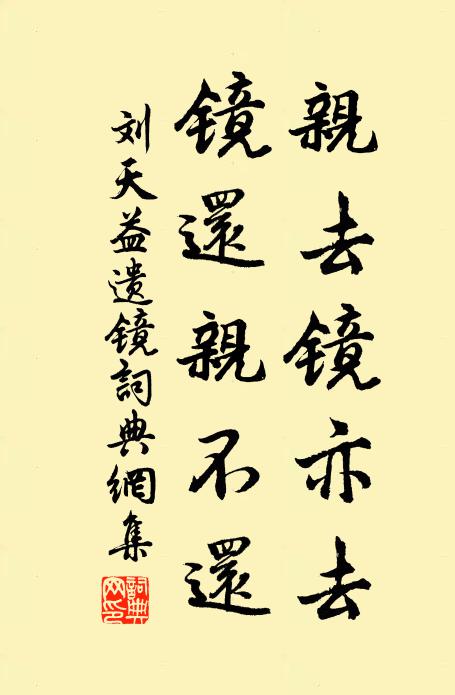 親去鏡亦去
鏡還親不還
刘天益遗鏡詞典網集
詞典网印